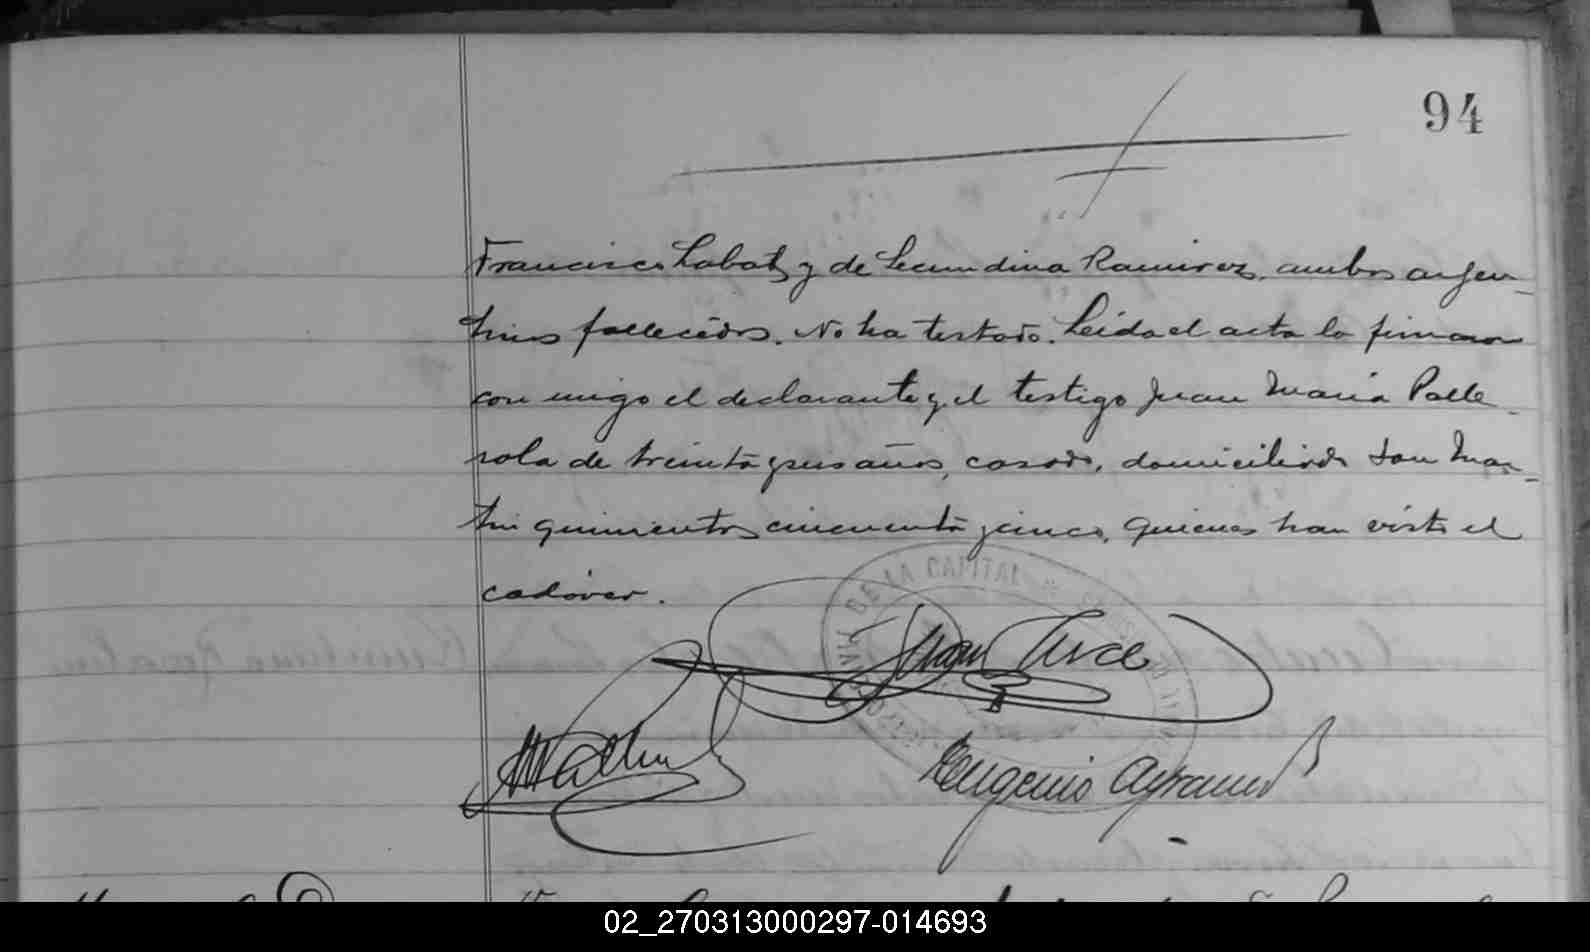 94
Francisco Labat y de Secundina Ramirez, ambos argen-
tinos fallecidos. No ha testado. Leida el acta la firmaron
con migo el declarante y el testigo Juan Maria Palle-
rola de treinta y seis años, casado, domiciliado San Mar-
tin quinientos cincuenta y cinco, quienes han visto el
cadáver.
DE LA CAPITAL
Juan
Eugenio
02_270313000297-014693